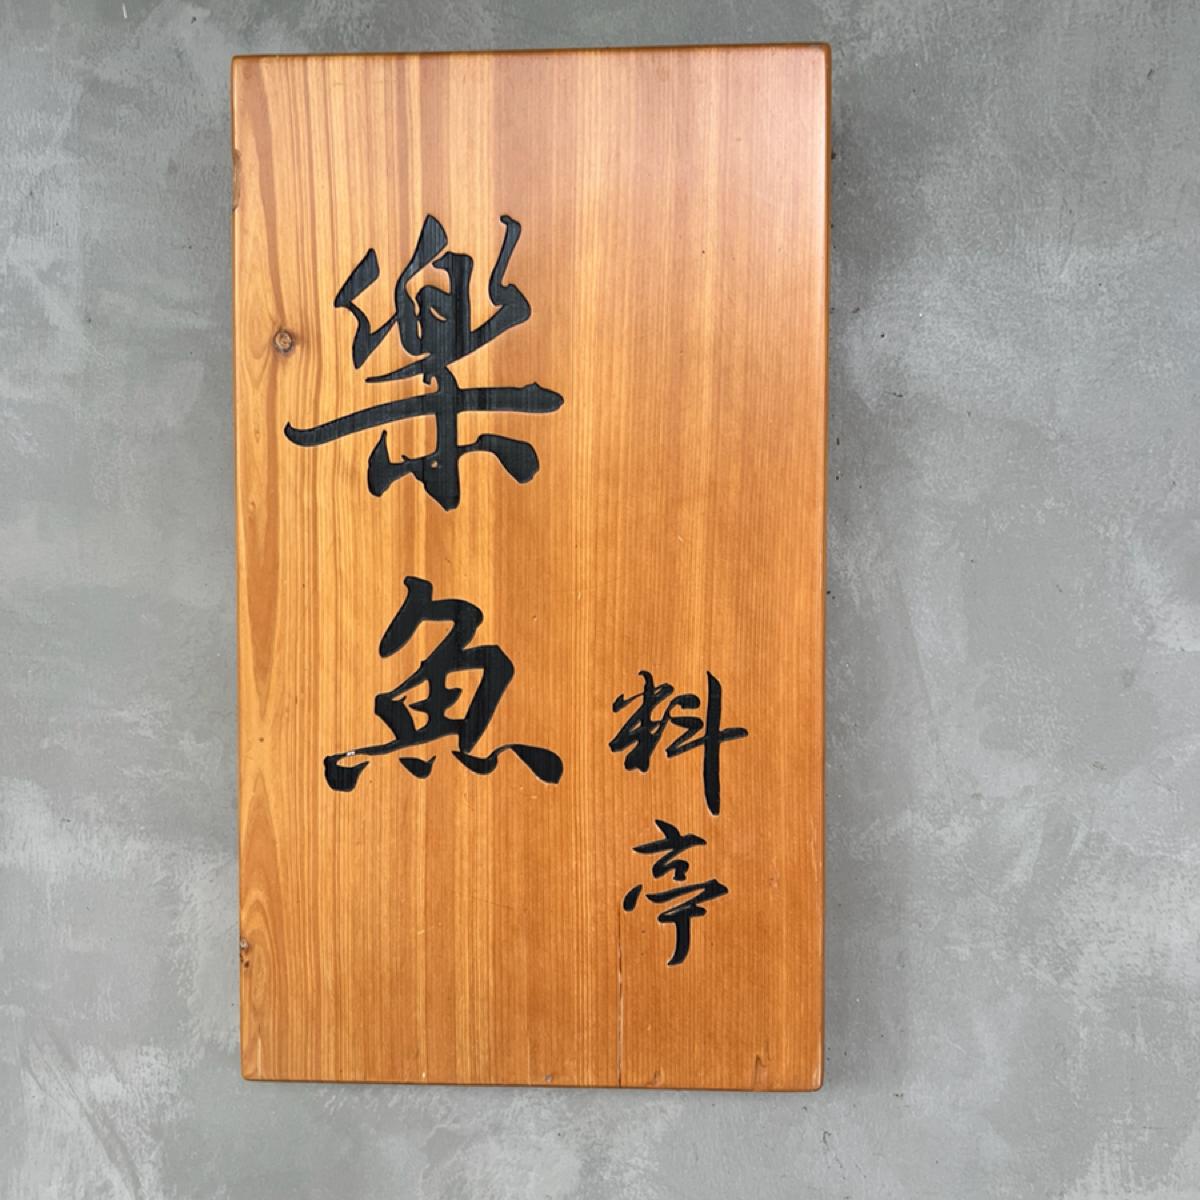 樂魚
料亭